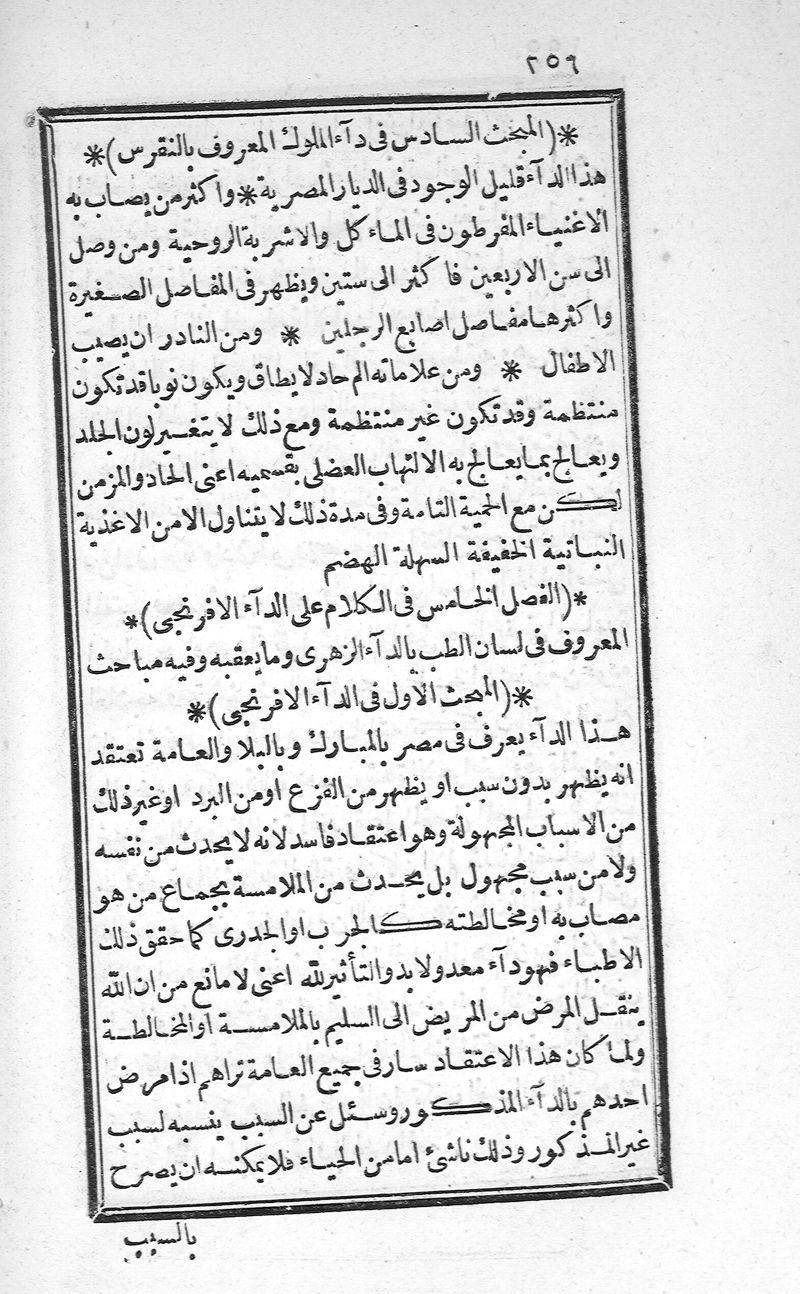 ٢٥٦
*(المبحث السادس فى دآء الملوك المعروف بالنقرس)*
هذا الدآء قليل الوجود فى الديار المصرية * واكثر من يصاب به
الاغنياء المفرطون فى الماء كل والاشربة الروحية ومن وصل
الى سن الاربعين فاكثر الى ستين ويظهر فى المفاصل الصغيرة
واكثرها مفاصل اصابع الرجلين * ومن النادر ان يصيب
الاطفال * ومن علاماته الم حاد لا يطاق ويكون نوبا قد تكون
منتظمة وقد تكون غير منتظمة ومع ذلك لا يتغير لون الجلد
ويعالج بما يعالج به الالتهاب العضلى بقسميه اعنى الحاد والمزمن
لكن مع الحمية التامة وفى مدة ذلك لا يتناول الا من الاغذية
النباتية الخفيفة السهلة الهضم
*(الفصل الخامس فى الكلام على الدآء الافرنجى)*
المعروف فى لسان الطب بالدآء الزهرى وما يعقبه وفيه مباحث
*(المبحث الاول فى الدآء الافرنجى)*
هذا الدآء يعرف فى مصر بالمبارك وبالبلا والعامة تعتقد
انه يظهر بدون سبب او يظهر من الفزع او من البرد او غير ذلك
من الاسباب المجهولة وهو اعتقاد فاسد لانه لا يحدث من نفسه
ولا من سبب مجهول بل يحدث من الملامسة بجماع من هو
مصاب به او مخالطته كالجرب او الجدرى كما حقق ذلك
الاطباء فهو دآء معد ولا بد والتأثير لله اعنى لا مانع من ان الله
ينقل المرض من المريض الى السليم بالملامسة او المخالطة
ولما كان هذا الاعتقاد سار فى جميع العامة تراهم اذا مرض
احدهم بالدآء المذكور وسئل عن السبب ينسبه لسبب
غير المذكور وذلك ناشئ اما من الحياء فلا يمكنه ان يصرح
بالسبب